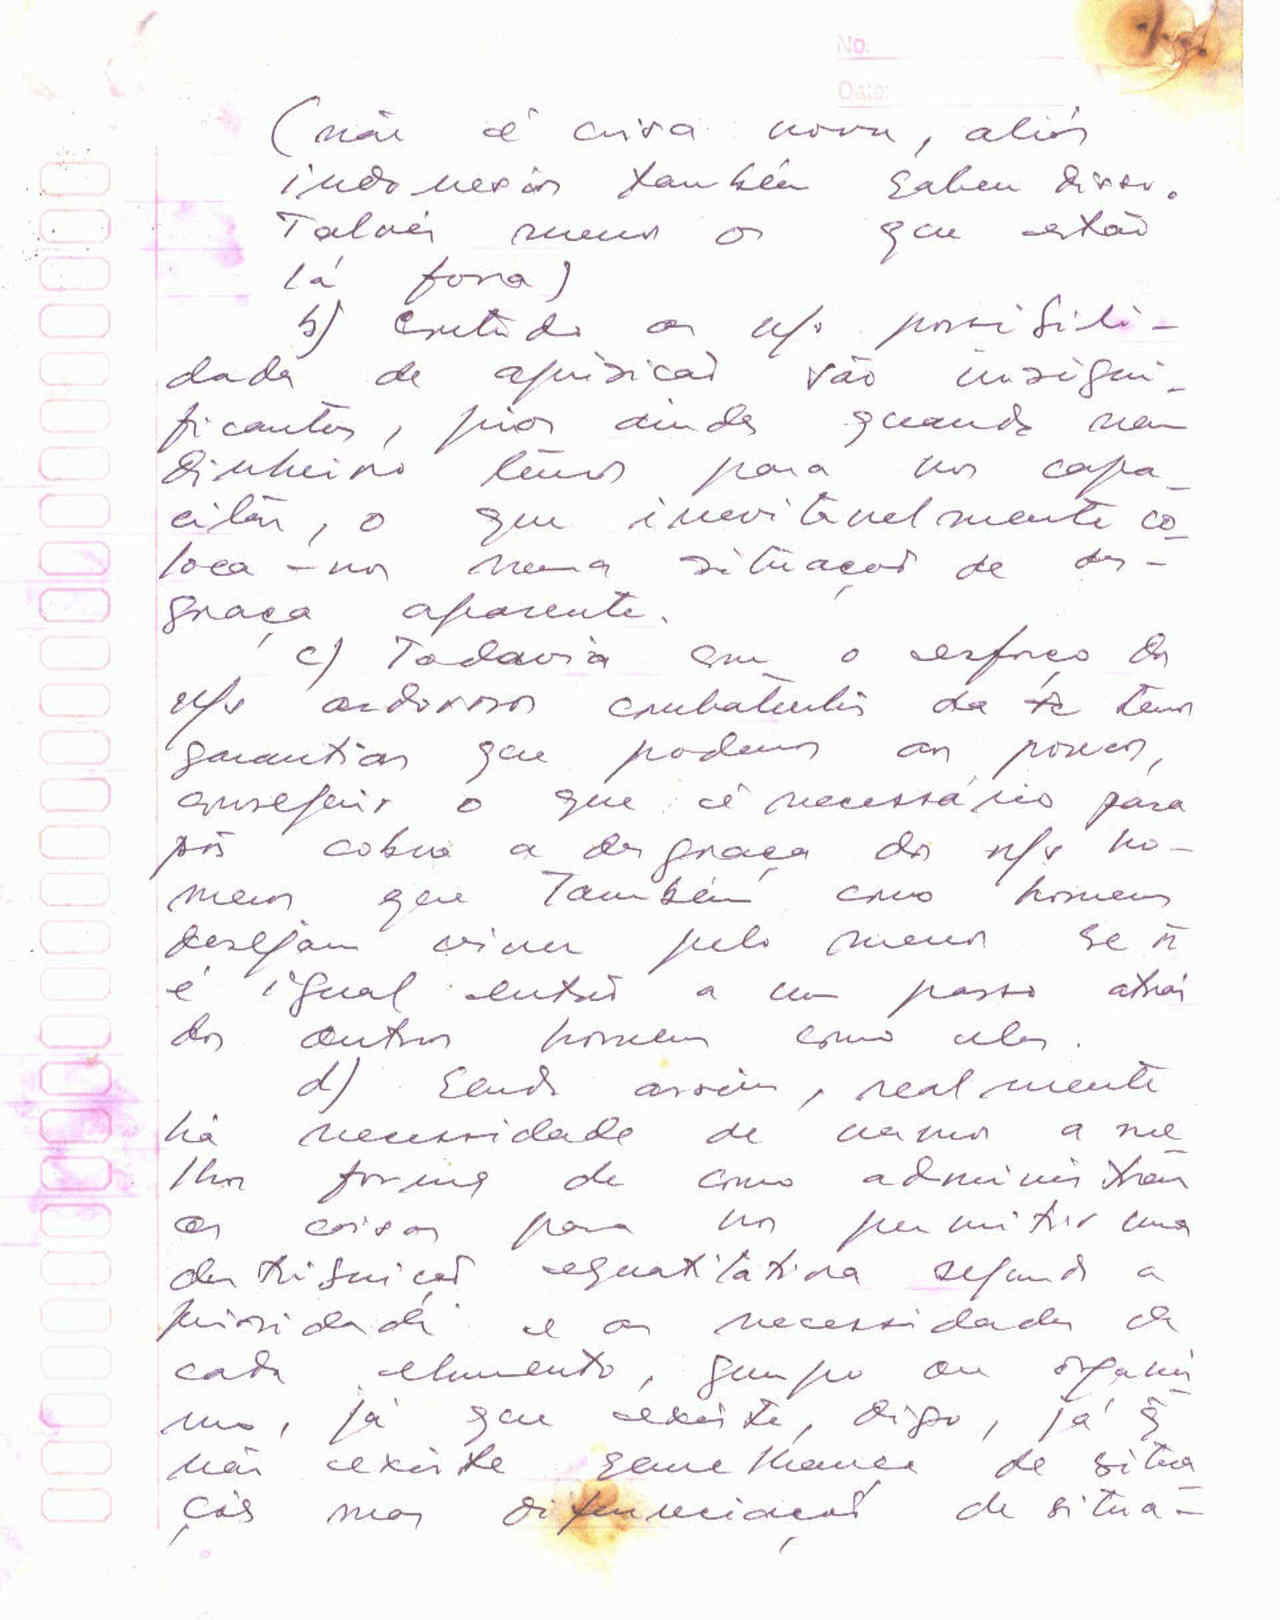 No.
Date:
(não é coisa nova, aliás
indonésios também sabem disso.
Talvéz menos os que estão
lá fora)
b) Contudo as n/s possibili-
dades de aquisição são insigni-
ficantes, pior ainda quando nem
dinheiro temos para nos capa-
citar, o que inevitavelmente co-
loca-nos numa situação de des-
graça aparente.
c) Todavia com o esforço dos
n/s ardorosos combatentes da temos
garantias que podemos aos poucos,
conseguir o que é necessário para
pôr cobro a desgraça dos n/s ho-
mens que também como homens
desejam viver pelo menos se ñ
é igual então a um passo atrás
dos outros homens como eles.
d) Sendo assim, realmente
há necessidade de vermos a me
lhor forma de como administrar
as coisas para nos permitir uma
destribuição equatitativa segundo a
prioridade e as necessidades de
cada elemento, grupo ou organis
mo, já que existe, digo, já q̃
não existe semelhança de situa
ções mas diferenciação de situa-